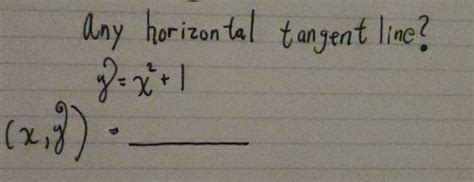 any horizontal tangent line?
y = x² + 1
(x, y) = ______